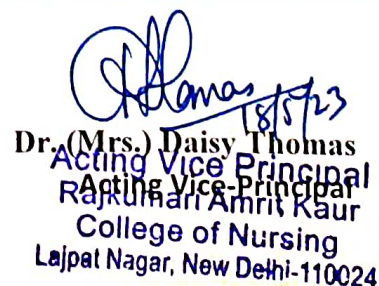 18/5/23
Dr. (Mrs.) Daisy Thomas
Acting Vice Principal
Acting Vice-Principal
Rajkumari Amrit Kaur
College of Nursing
Lajpat Nagar, New Delhi-110024